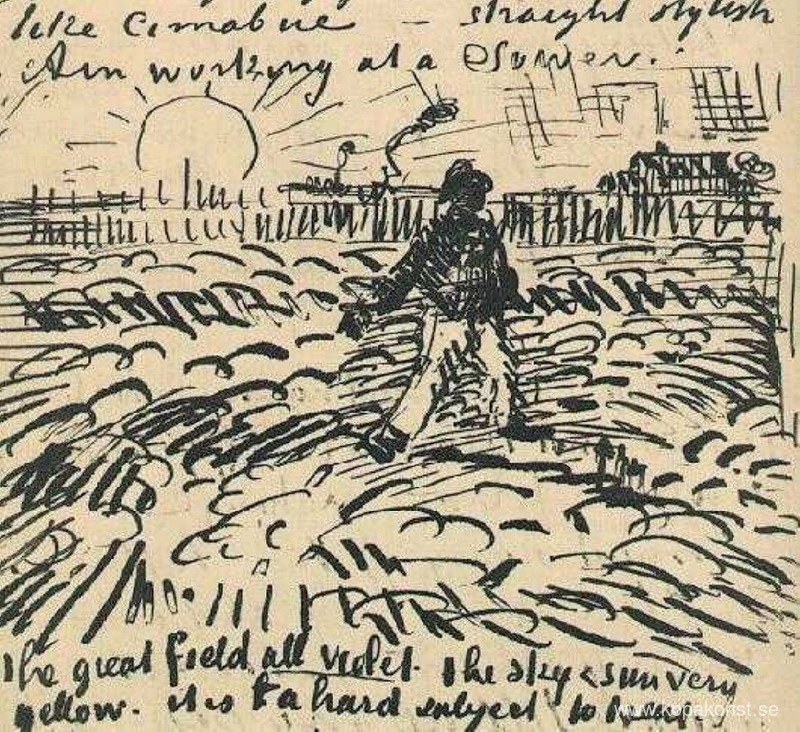 like Cimabue — straight stylish
Am working at a Sower.
the great field all violet. the sky & sun very
yellow. it is a hard subject to
www.kopakonst.se